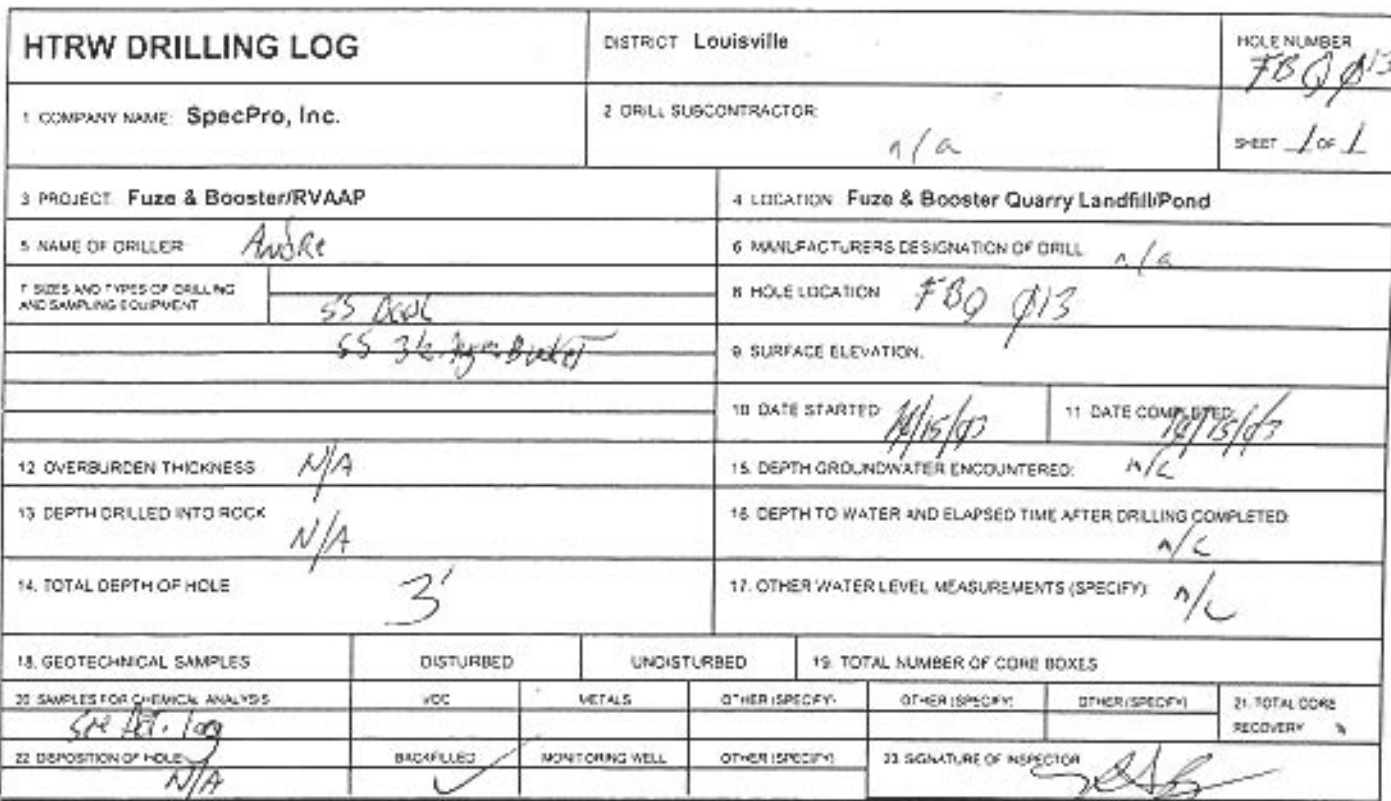 HTRW DRILLING LOG
DISTRICT Louisville
HOLE NUMBER
FBQ Ø13
1 COMPANY NAME: SpecPro, Inc.
2 DRILL SUBCONTRACTOR:
n/a
SHEET 1 OF 1
3 PROJECT: Fuze & Booster/RVAAP
4 LOCATION: Fuze & Booster Quarry Landfill/Pond
5 NAME OF DRILLER: Andre
6 MANUFACTURERS DESIGNATION OF DRILL n/a
7 SIZES AND TYPES OF DRILLING
AND SAMPLING EQUIPMENT
SS
SS Bucket
8 HOLE LOCATION FBQ Ø13
9 SURFACE ELEVATION:
10 DATE STARTED:
11 DATE COMPLETED:
12 OVERBURDEN THICKNESS N/A
15. DEPTH GROUNDWATER ENCOUNTERED:
13 DEPTH DRILLED INTO ROCK
N/A
16. DEPTH TO WATER AND ELAPSED TIME AFTER DRILLING COMPLETED:
14. TOTAL DEPTH OF HOLE 3'
17. OTHER WATER LEVEL MEASUREMENTS (SPECIFY):
18. GEOTECHNICAL SAMPLES DISTURBED UNDISTURBED 19. TOTAL NUMBER OF CORE BOXES
20 SAMPLES FOR CHEMICAL ANALYSIS VOC METALS OTHER (SPECIFY) OTHER (SPECIFY) OTHER (SPECIFY) 21. TOTAL CORE
RECOVERY %
log
22 DISPOSITION OF HOLE BACKFILLED MONITORING WELL OTHER (SPECIFY) 23 SIGNATURE OF INSPECTOR
N/A ✓